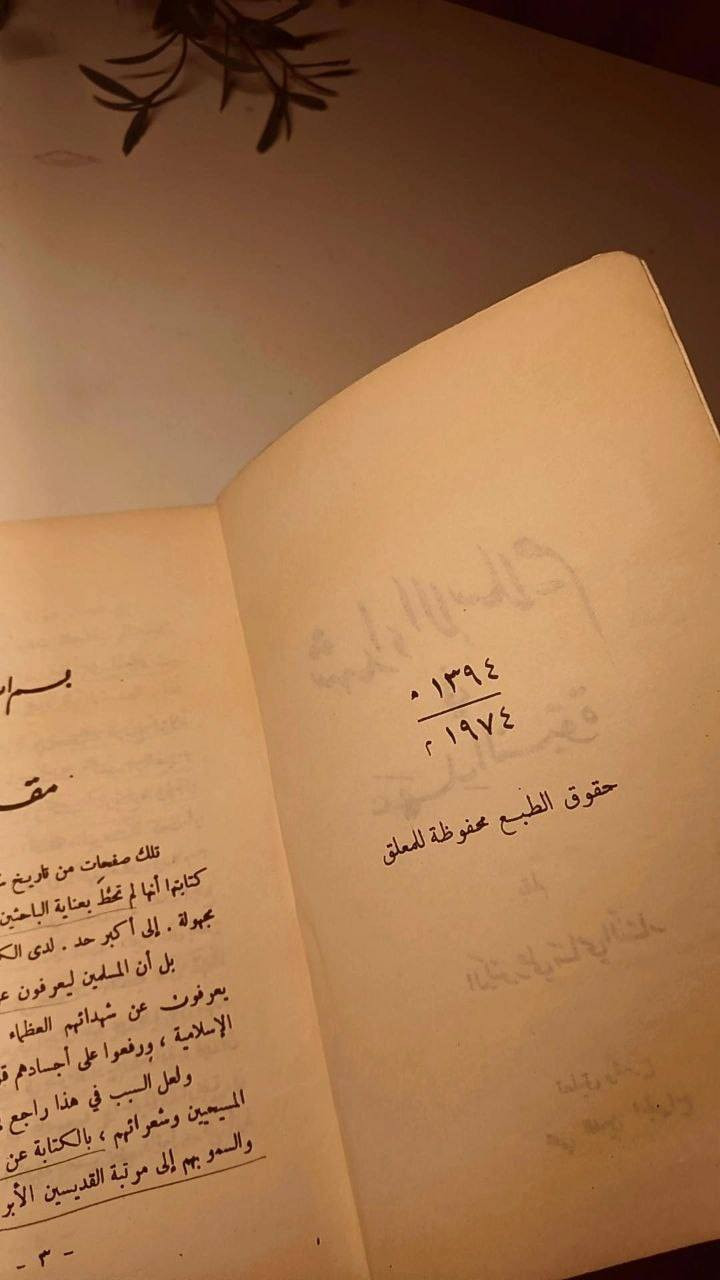 ١٣٩٤ هـ
١٩٧٤ م
حقوق الطبع محفوظة للمعلق
شهداء الإسلام
عهد النبوة
بقلم
الدكتور علي سامي النشار
تلك صفحات من تاريخ
كتابتها أنها لم تحظَ بعناية الباحثين
مجهولة . إلى أكبر حد . لدى
بل أن المسلمين ليعرفون
يعرفون عن شهدائهم العظماء
الإسلامية ، ورفعوا على أجسادهم
ولعل السبب في هذا راجع
المسيحيين وشعرائهم ، بالكتابة عن
والسمو بهم إلى مرتبة القديسين
- ٣ -